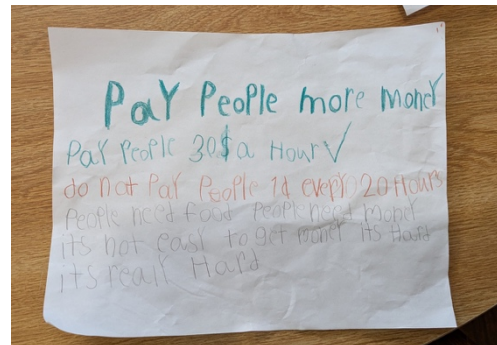 PaY PeoPle more moneY
PaY PeoPle 30$ a HourV
do not PaY PeoPle 1¢ every 20 Hours
PeoPle need food PeoPle need money
its not easy to get money its Hard
its realy Hard